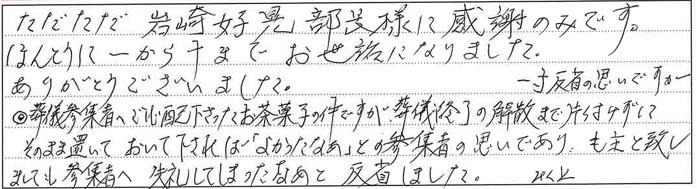 ただただ 岩崎好晃 部長様に感謝のみです。
ほんとうに一から十まで お世話になりました。
ありがとうございました。 一寸反省の思いですが一
◎葬儀参集者へ心配下さったお茶菓子の件ですが、葬儀終了の解散まで片付けずにて
そのまま置いて おいて下されば「よかったなあ」との参集者の思いであり、も主と致し
ましても参集者へ 失礼してしまったなあと 反省しました。